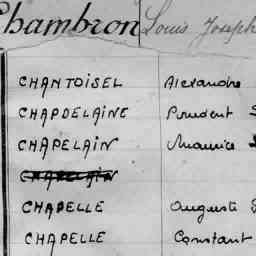 Chambron Louis Joseph
CHANTOISEL Alexandre
CHAPDELAINE Prudent
CHAPELAIN Maurice
CHAPELAIN
CHAPELLE Auguste
CHAPELLE Constant